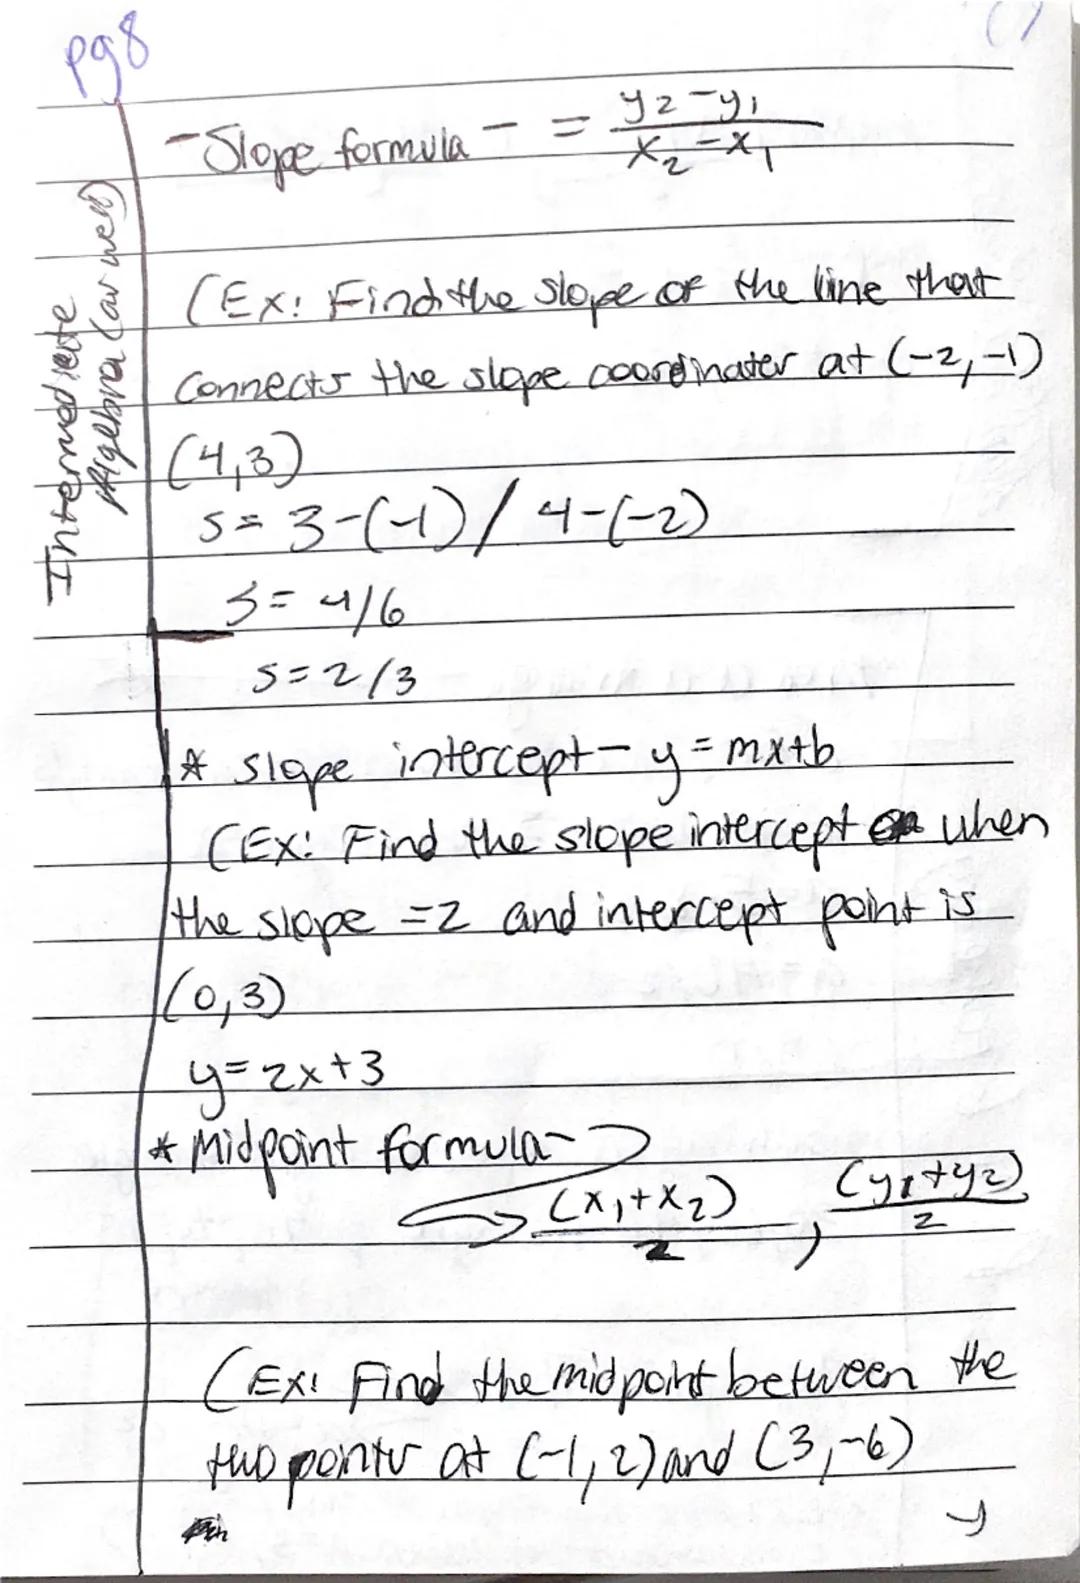 pg8
- Slope formula - = y₂-y₁ / x₂-x₁
Intermediate
Algebra (as well)
(Ex: Find the slope of the line that
connects the slope coordinates at (-2,-1)
(4,3)
s= 3-(-1)/ 4-(-2)
s= 4/6
s=2/3
* slope intercept - y=mx+b
(EX: Find the slope intercept when
the slope =2 and intercept point is
(0,3)
y=2x+3
* Midpoint formula-
(x₁+x₂)/2 , (y₁+y₂)/2
(Ex: Find the midpoint between the
two points at (-1,2) and (3,-6)